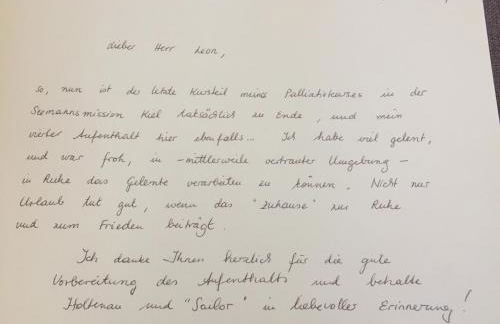 Lieber Herr Leon,
so, nun ist der letzte Kursteil meines Palliativkurses in der
Seemannsmission Kiel tatsächlich zu Ende, und mein
vierter Aufenthalt hier ebenfalls... Ich habe viel gelernt,
und war froh, in - mittlerweile vertrauter Umgebung -
in Ruhe das Gelernte verarbeiten zu können. Nicht nur
Urlaub tut gut, wenn das "Zuhause" zur Ruhe
und zum Frieden beiträgt.
Ich danke Ihnen herzlich für die gute
Vorbereitung des Aufenthalts und behalte
Holtenau und "Sailor" in liebevoller Erinnerung!